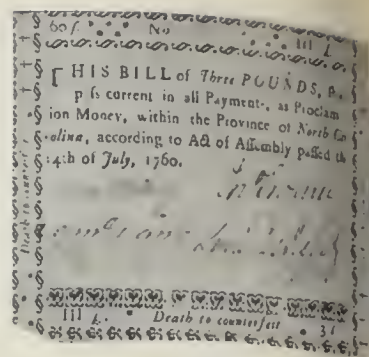 60ſ. No III £.
THIS BILL of Three POUNDS, ſh
p ſs current in all Payment., as Proclam
ion Money, within the Province of North Ca
.olina, according to Act of Aſſembly paſſed th
:4th of July, 1760.
III £. Death to counterfeit 3£
Death to counterf